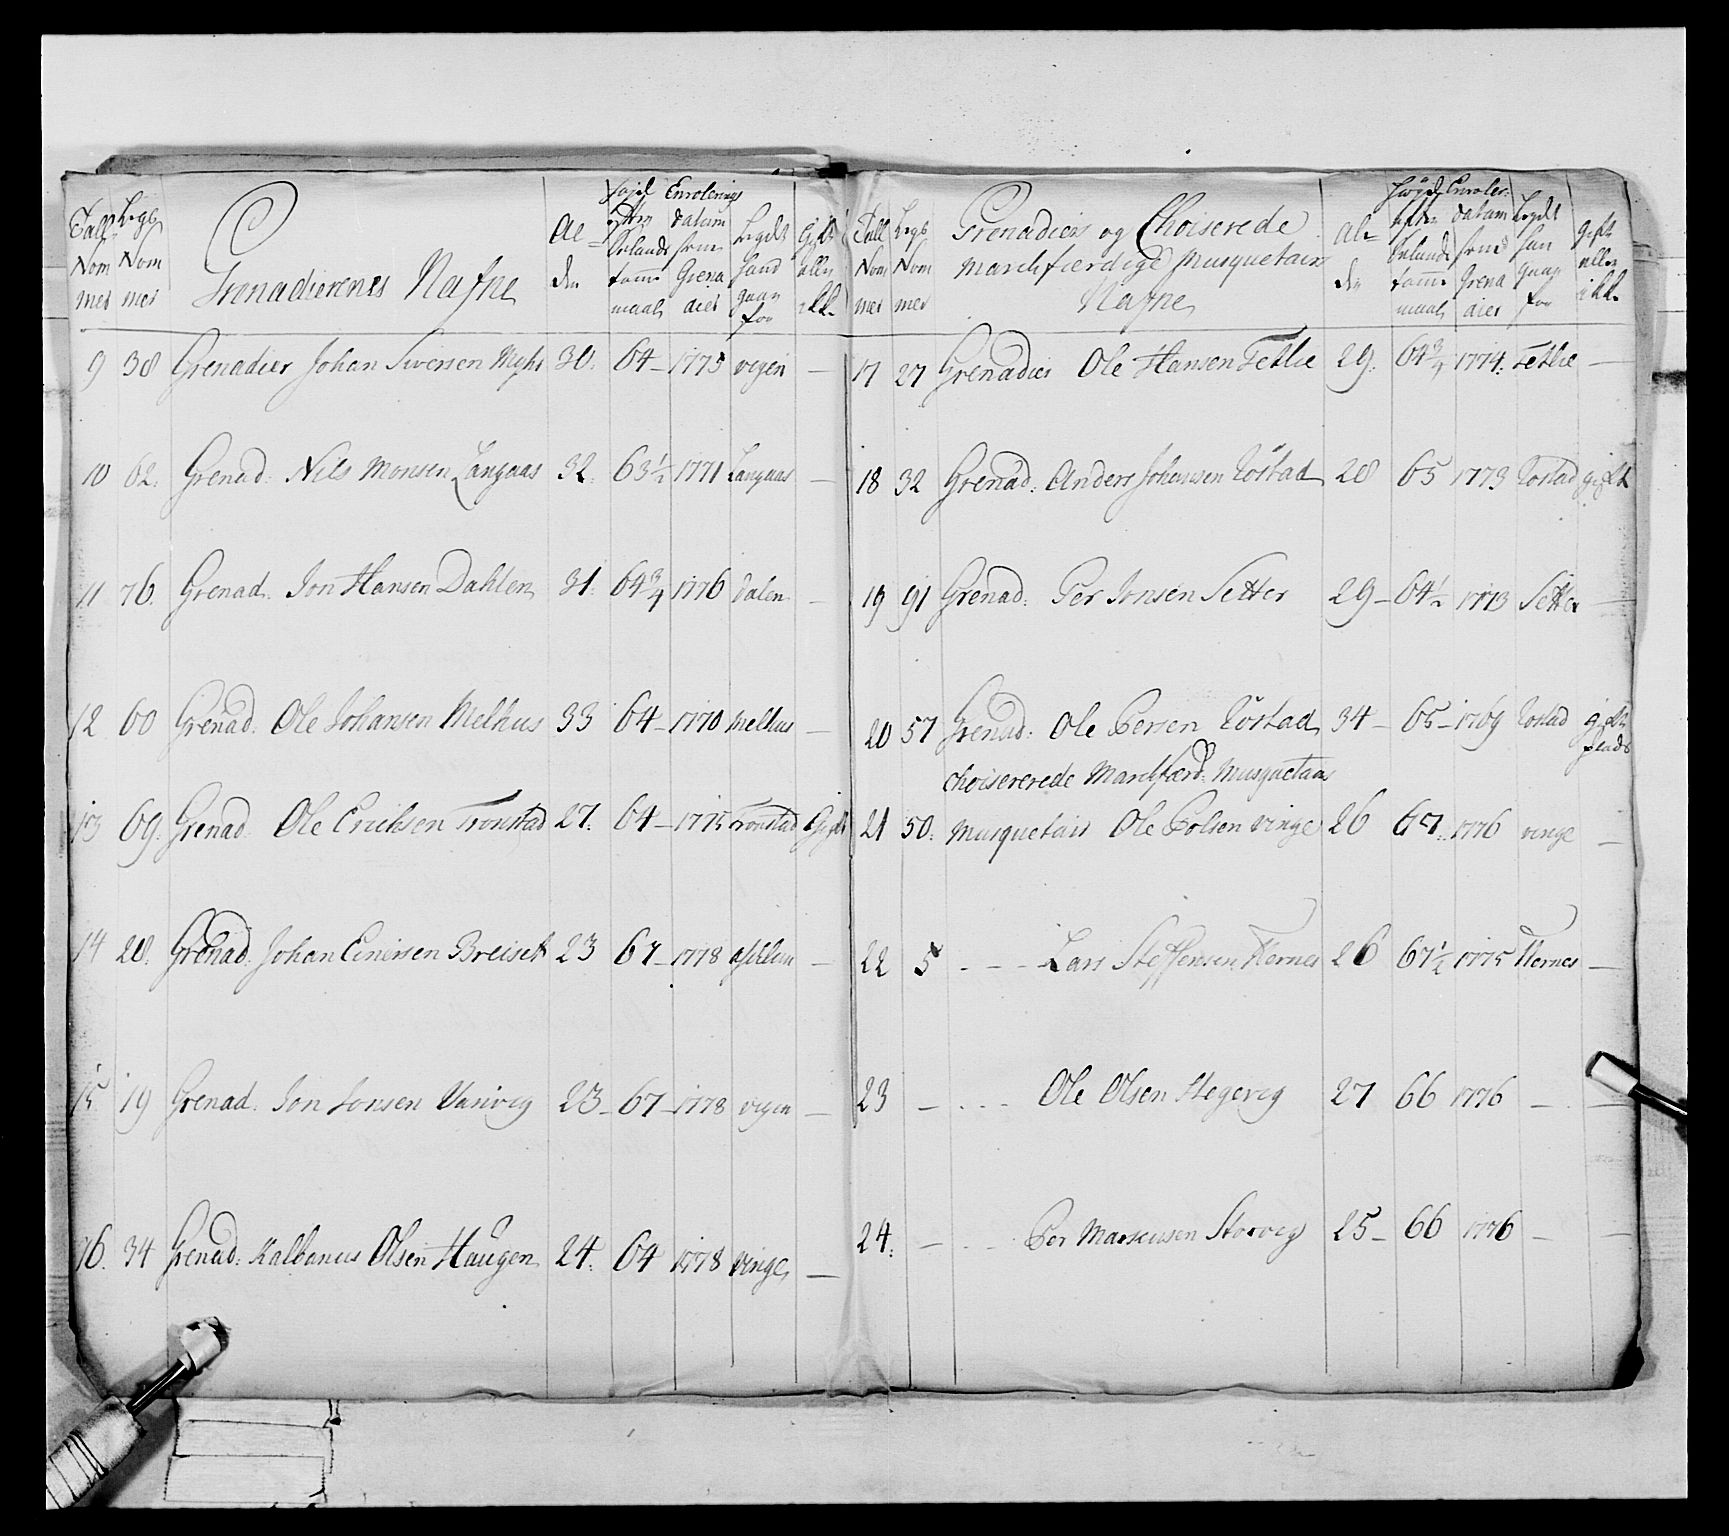 Tall Nommer | Legs Nommer | Grenadierenes Nafne | Alden | Højd efter Sielandstomme maal | Enrolerings datum som Grenadier | Legdt hand gaar for | Gift eller ikke
9 38 Grenadier Johan Siversen Myhr 30. 64 – 1775 vegen –
10 62. Grenad: Nils Monsen Langaas 32. 63½ 1771 Langaas –
11 76. Grenad. Jon Hansen Dahlen 31. 64¾ 1776 dalen –
12 60 Grenad: Ole Johansen Melhus 33 64 – 1770 Melhus –
13 69. Grenad Ole Ericksen Tronstad 27. 64 – 1775 Tronstad Gift
14 28. Grenad. Johan Einersen Breiset 23 67 – 1778 –
15 19 Grenad. Jon Jonsen Vanveg 23 – 67 – 1778 vegen –
16. 34 Grenad: Kalbanus Olsen Haugen 24. 64 1778 Vinge –
Tall Nommer | Legs Nommer | Grenadiers og Choiserede Marchfærdige Musquetairs Nafne | Alden | Højd efter Sielands tomme maal | Enroler. datum som Grenadier | Legdt han gaar for | gift eller ikke
17 27 Grenadier Ole Hansen Fetlie 29. 64¾ 1774. Fetlie –
18 32 Grenad: Anders Johansen Röstad 28 65 1773 Rostad gift
19 91 Grenad: Per Jonsen Setter 29 – 64½ 1773 Setter –
20 57 Grenad: Ole Persen Röstad 34 – 65 – 1769 Rostad gift
choisererede Marchfærd: Musquetairs
21 50: Musquetair Ole Polsen vinge 26 67. 1776 vinge –
22 5 – – – Lars Steffensen Fiernes 26 67½ 1775 Fiernes –
23 – – – Ole Olsen Hegeveg 27 66 1776 – –
24: – – – Per Markusen Storveg 25 – 66 1776 – –